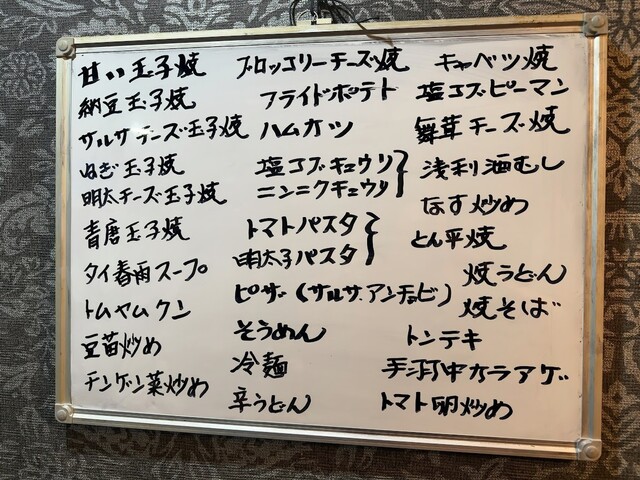 甘い玉子焼
納豆玉子焼
サルサチーズ玉子焼
ねぎ玉子焼
明太チーズ玉子焼
青唐玉子焼
タイ春雨スープ
トムヤムクン
豆苗炒め
チンゲン菜炒め
ブロッコリーチーズ焼
フライドポテト
ハムカツ
塩コブキュウリ
ニンニクキュウリ
トマトパスタ
明太子パスタ
ピザ(サルサ.アンチョビ)
そうめん
冷麺
辛うどん
キャベツ焼
塩コブピーマン
舞茸チーズ焼
浅利酒むし
なす炒め
とん平焼
焼うどん
焼そば
トンテキ
手羽中カラアゲ
トマト卵炒め